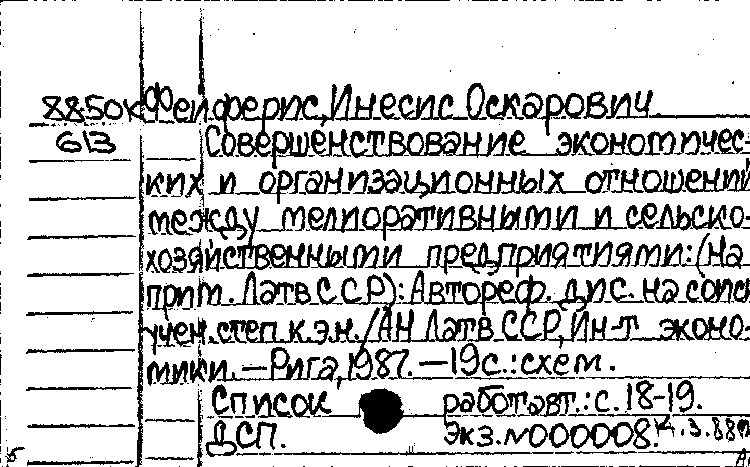 8850к Фейферис, Инесис Оскарович
613 Совершенствование экономичес-
ких и организационных отношений
между мелиоративными и сельско-
хозяйственными предприятиями: (На
прим. Латв ССР): Автореф. дис. на соиск
учен. степ. к.э.н. / АН Латв ССР, Ин-т эконо-
мики. — Рига, 1987. — 19с.: схем.
Список работ авт.: с. 18-19.
ДСП. Экз. N000008.
б